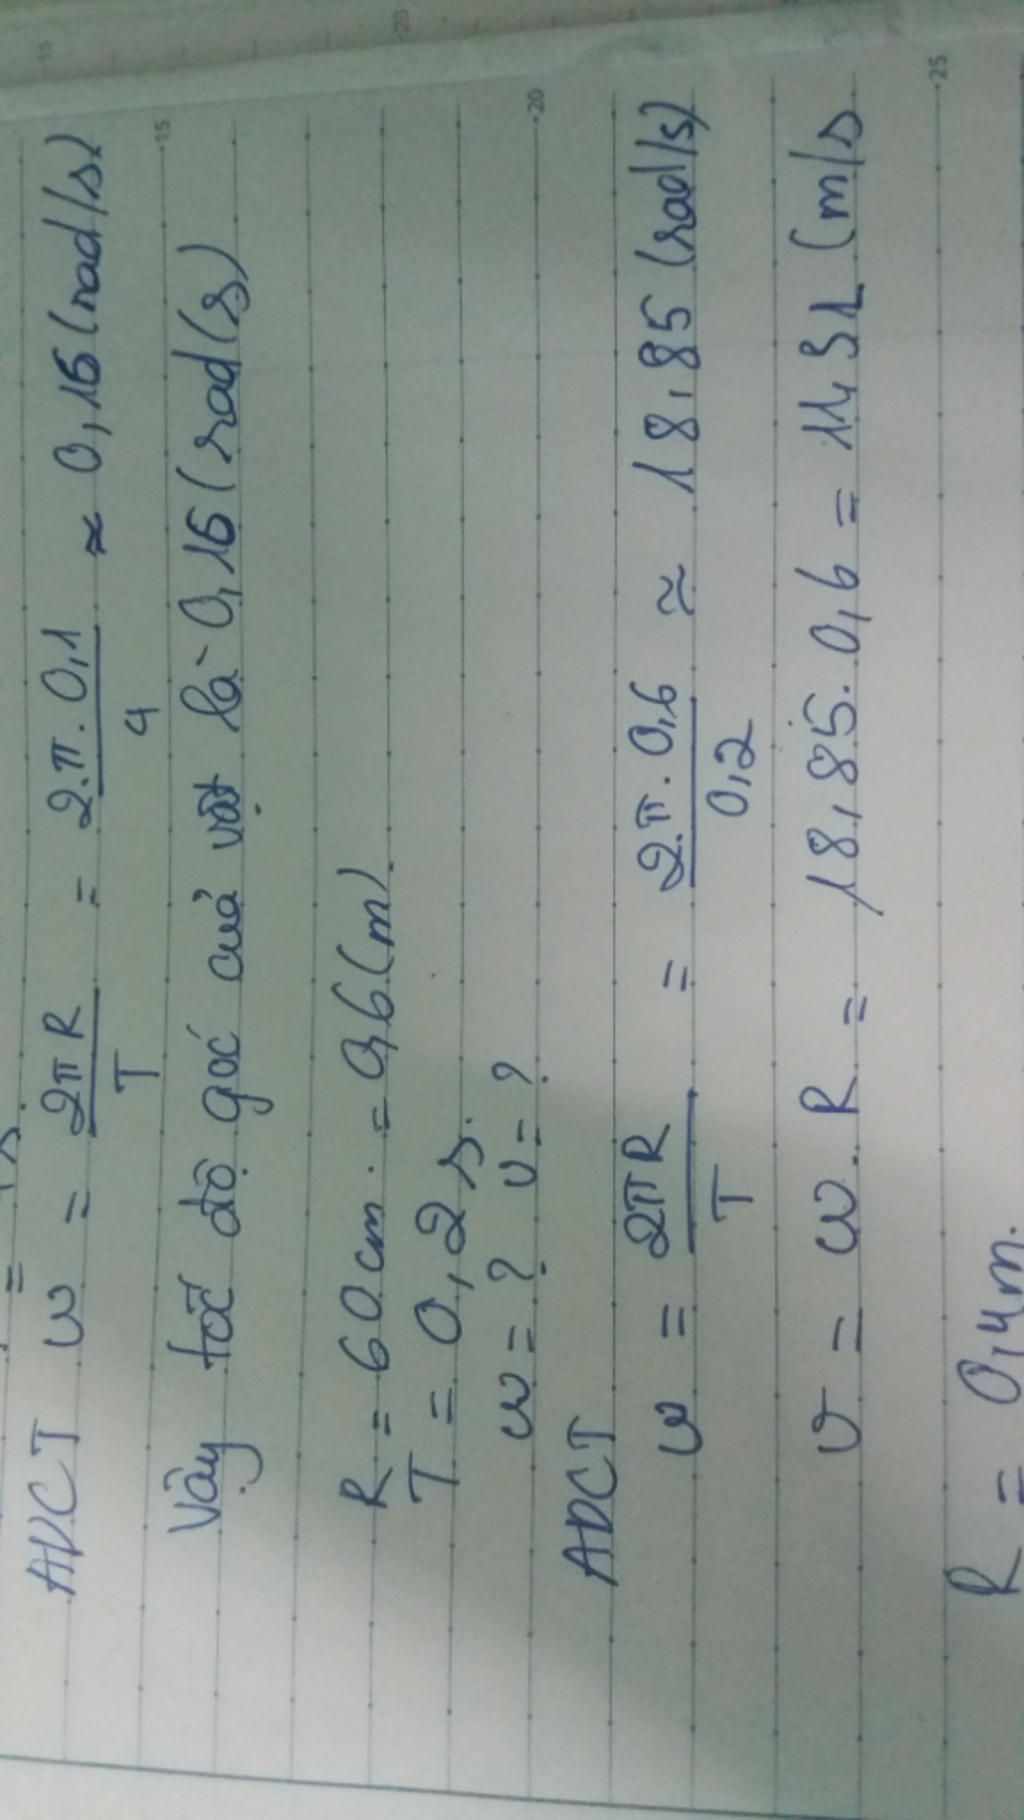 ADCT ω = 2πR/T = 2.π.0,1/4 ≈ 0,16 (rad/s)
Vậy tốc độ góc của vật là 0,16 (rad/s)
R = 60cm. = 0,6 (m).
T = 0,2 s.
ω = ? v = ?
ADCT
ω = 2πR/T = 2.π.0,6/0,2 ≃ 18,85 (rad/s)
v = ω.R = 18,85.0,6 = 11,31 (m/s
R = 0,4m.
15
20
25